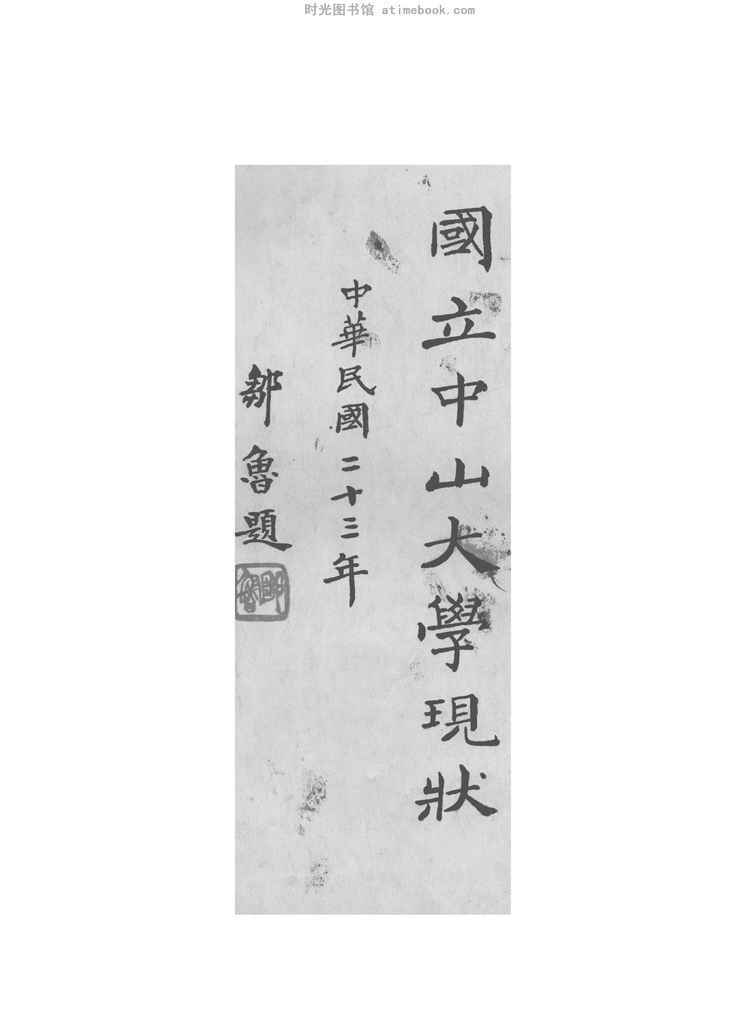 时光图书馆 atimebook.com
國立中山大學現狀
中華民國二十三年
鄒魯題